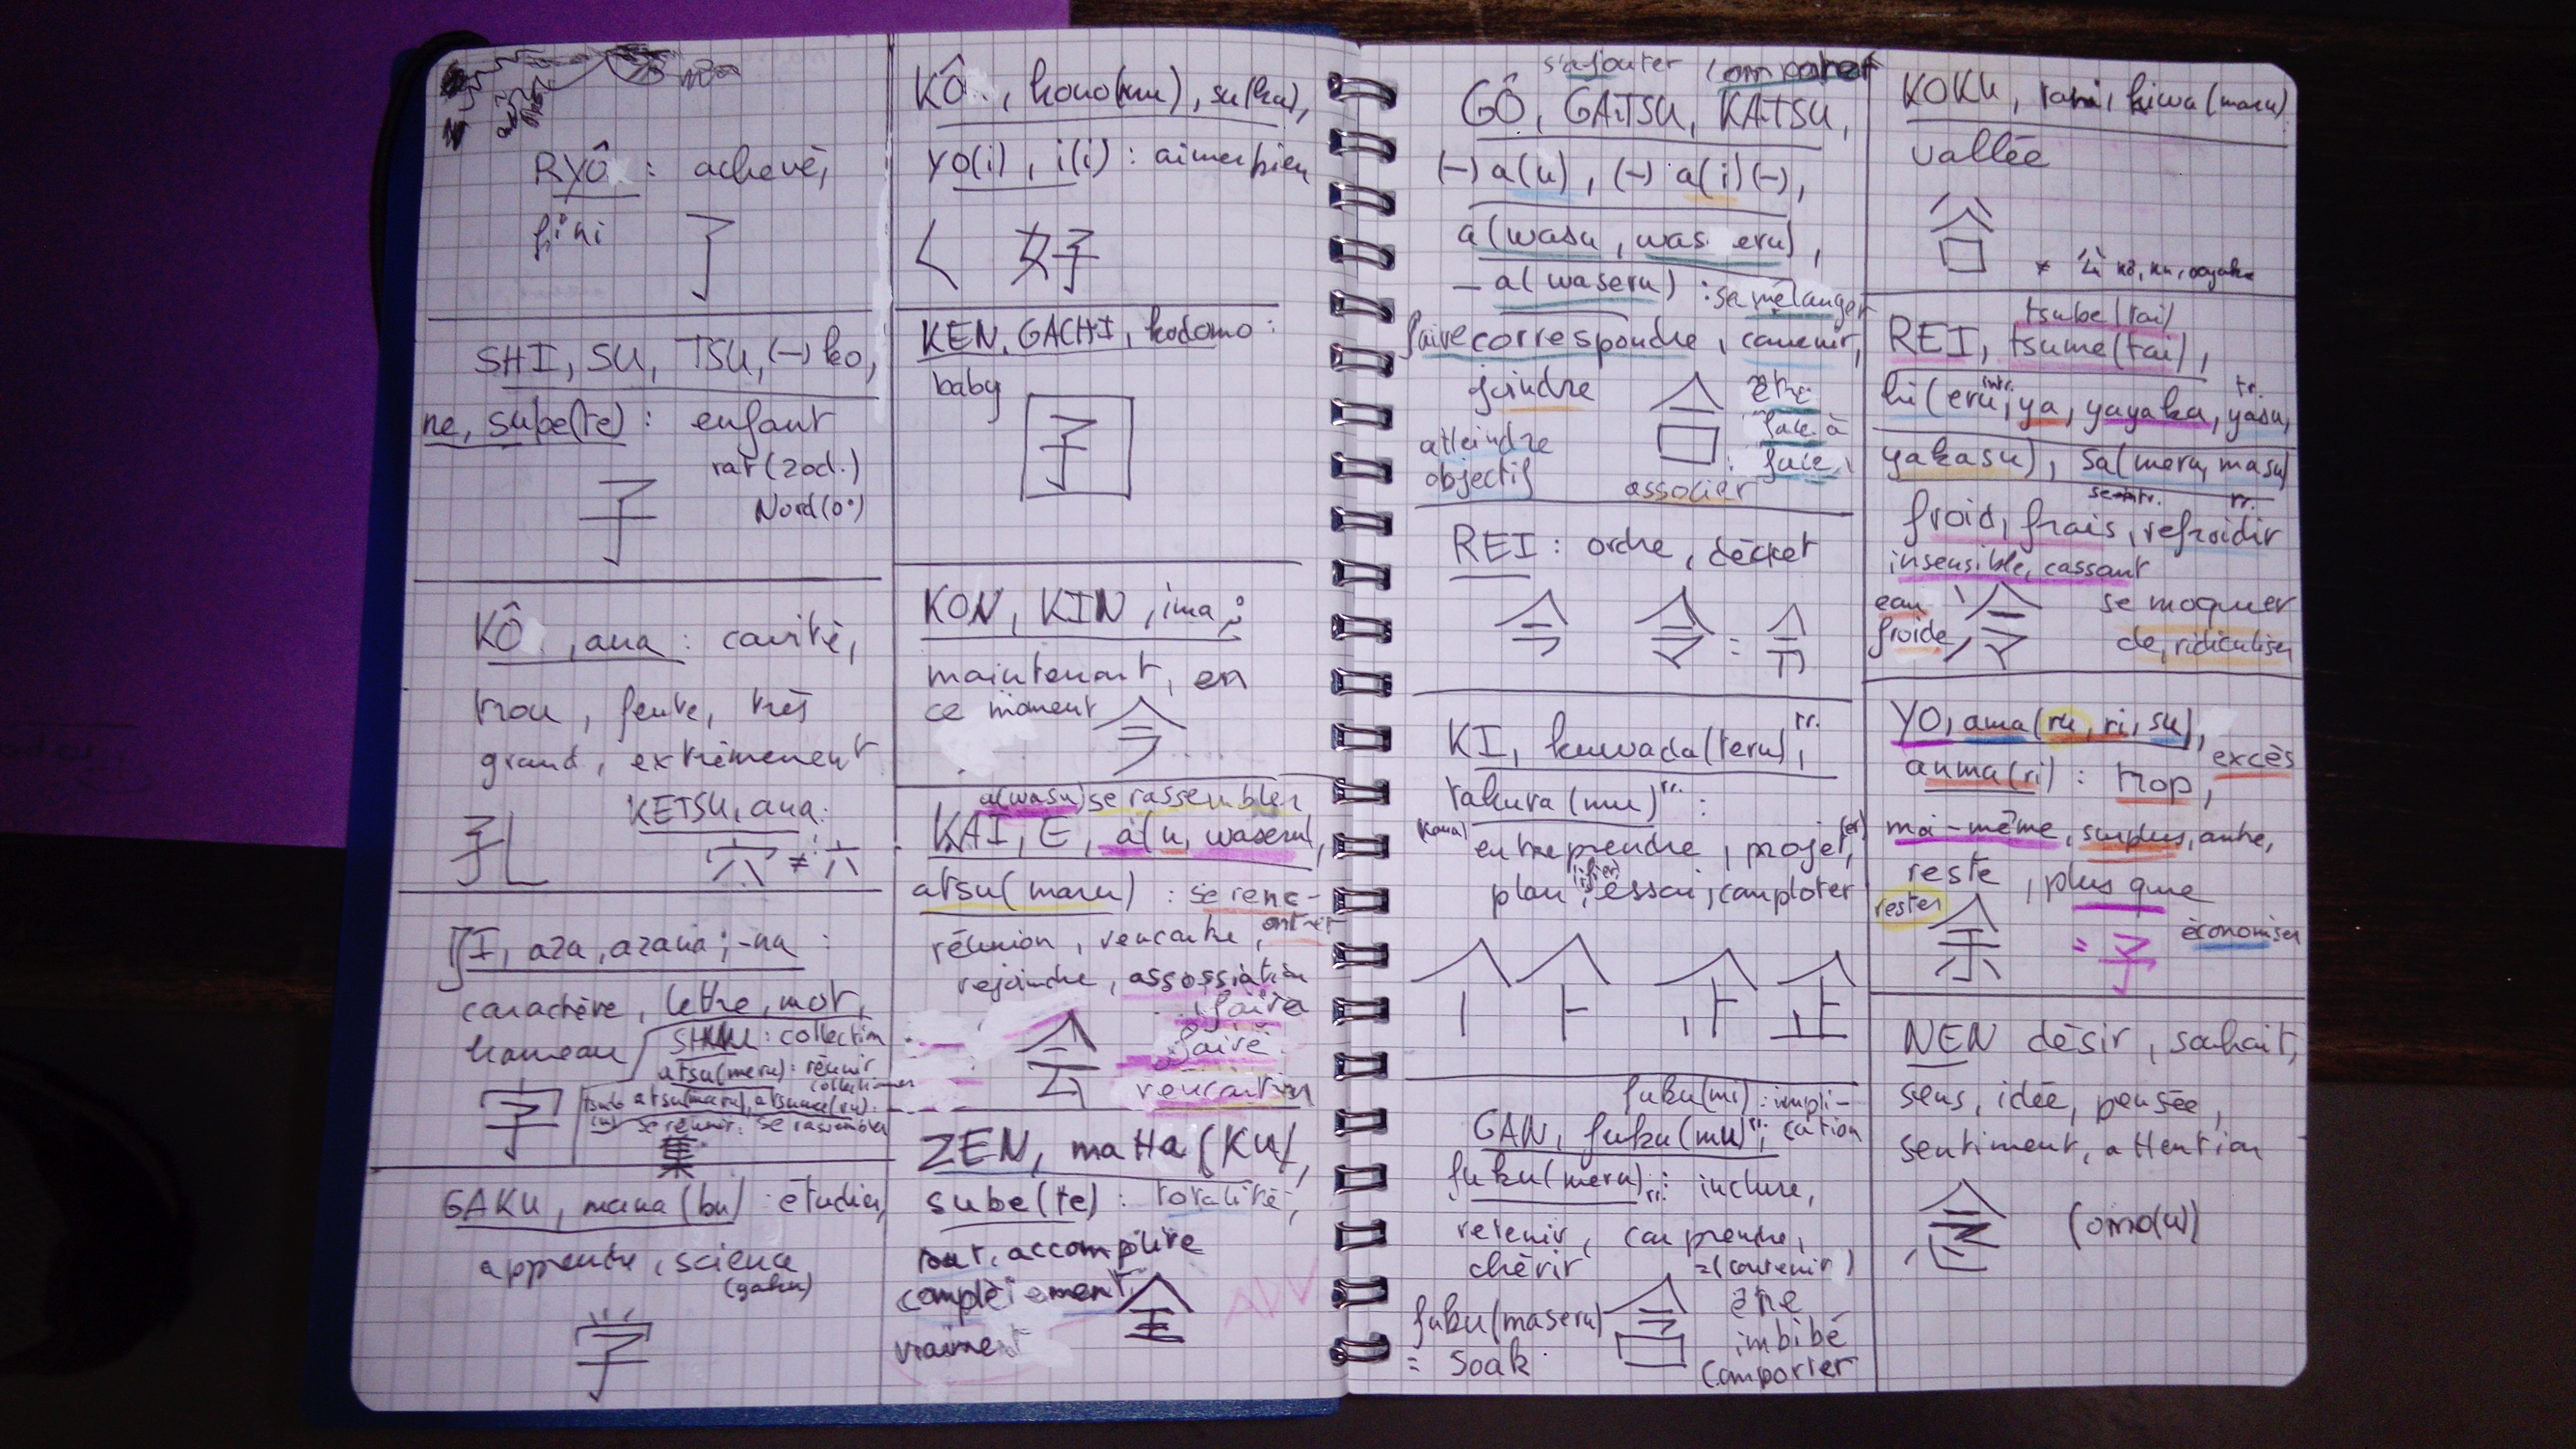 RYÔ : achevé,
fini
了
SHI, SU, TSU, (-)ko,
ne, sube(te) : enfant
rat (zod.)
子 Nord (0°)
KÔ, ana : cavité,
trou, fente, très
grand, extrêmement
KETSU, ana :
孔 穴 ≠ 六
JI, aza, azana ; -na :
caractère, lettre, mot,
hameau
SHUU : collection
atsu(meru) : réunir
collectionner
字
atsu(maru), atsume(ru) :
se réunir : se rassembler
集
GAKU, mana(bu) : étudier,
apprendre, science
(gaku)
学
KÔ, kono(mu), su(ku),
yo(i), i(i) : aimer bien
く 好
KEN, GACHI, kodomo :
baby
子
KON, KIN, ima :
maintenant, en
ce moment
今
a(wasu) se rassembler
KAI, E, a(u, waseru),
atsu(maru) : se renc-
ontrer
réunion, rencontre,
rejoindre, assossiation
faire
会 faire
rencontrer
ZEN, matta(KU),
sube(te) : totalité,
tout, accomplire
complètement
全
vraiment
s'ajouter comparer
GÔ, GATSU, KATSU,
(-) a(u), (-) a(i) (-),
a(wasu, waseru),
- a(waseru) : se mélanger
faire correspondre, convenir,
joindre 合 être
face à
face
atteindre
objectif
associer
REI : ordre, décret
令
KI, kuwada(teru) tr.,
takura(mu) tr. :
entreprendre, projet(er),
plan(ifier), essai, comploter
企
fuku(mi) : impli-
cation
GAN, fuku(mu) tr.,
fuku(meru) tr. : inclure,
retenir, comprendre,
chérir =(contenir)
fuku(maseru) 含 être
imbibé
= soak
comporter
KOKU, tani, kiwa(maru)
vallée
谷
≠ 公 kô, ku, ooyake
tsube(tai)
REI, tsume(tai),
hi(eru intr., ya, yayaka, yasu, tr.
yakasu), sa(meru, masu)
intr. tr.
froid, frais, refroidir
insensible, cassant
eau
froide
冷 se moquer
de, ridiculiser
YO, ama(ru, ri, su),
anma(ri) : trop, excès
moi-même, surplus, autre,
reste, plus que
rester
余 = 予 économiser
NEN désir, souhait,
sens, idée, pensée,
sentiment, attention
念 (omo(u))